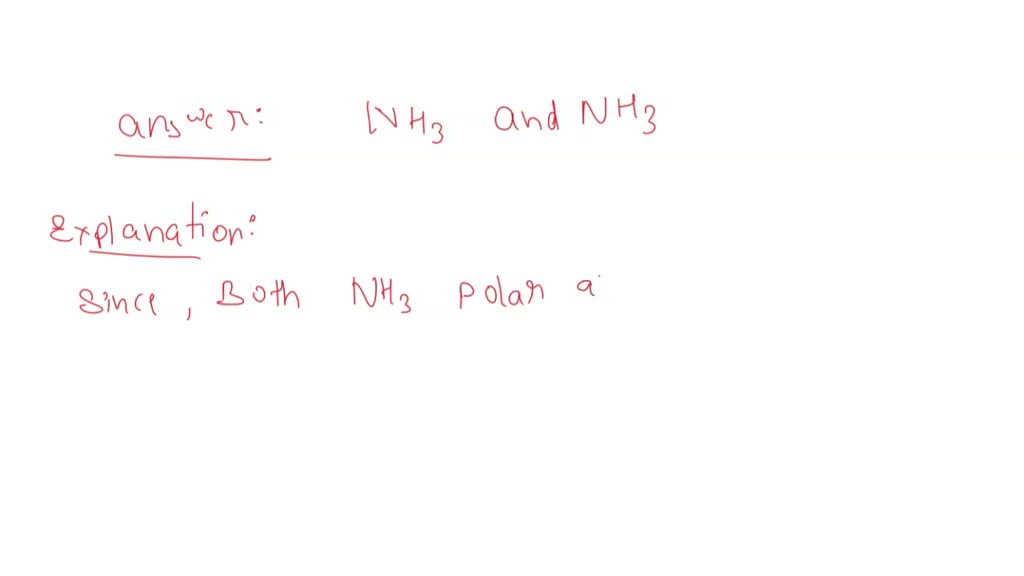 answer: NH3 and NH3
Explanation:
Since, Both NH3 polar a